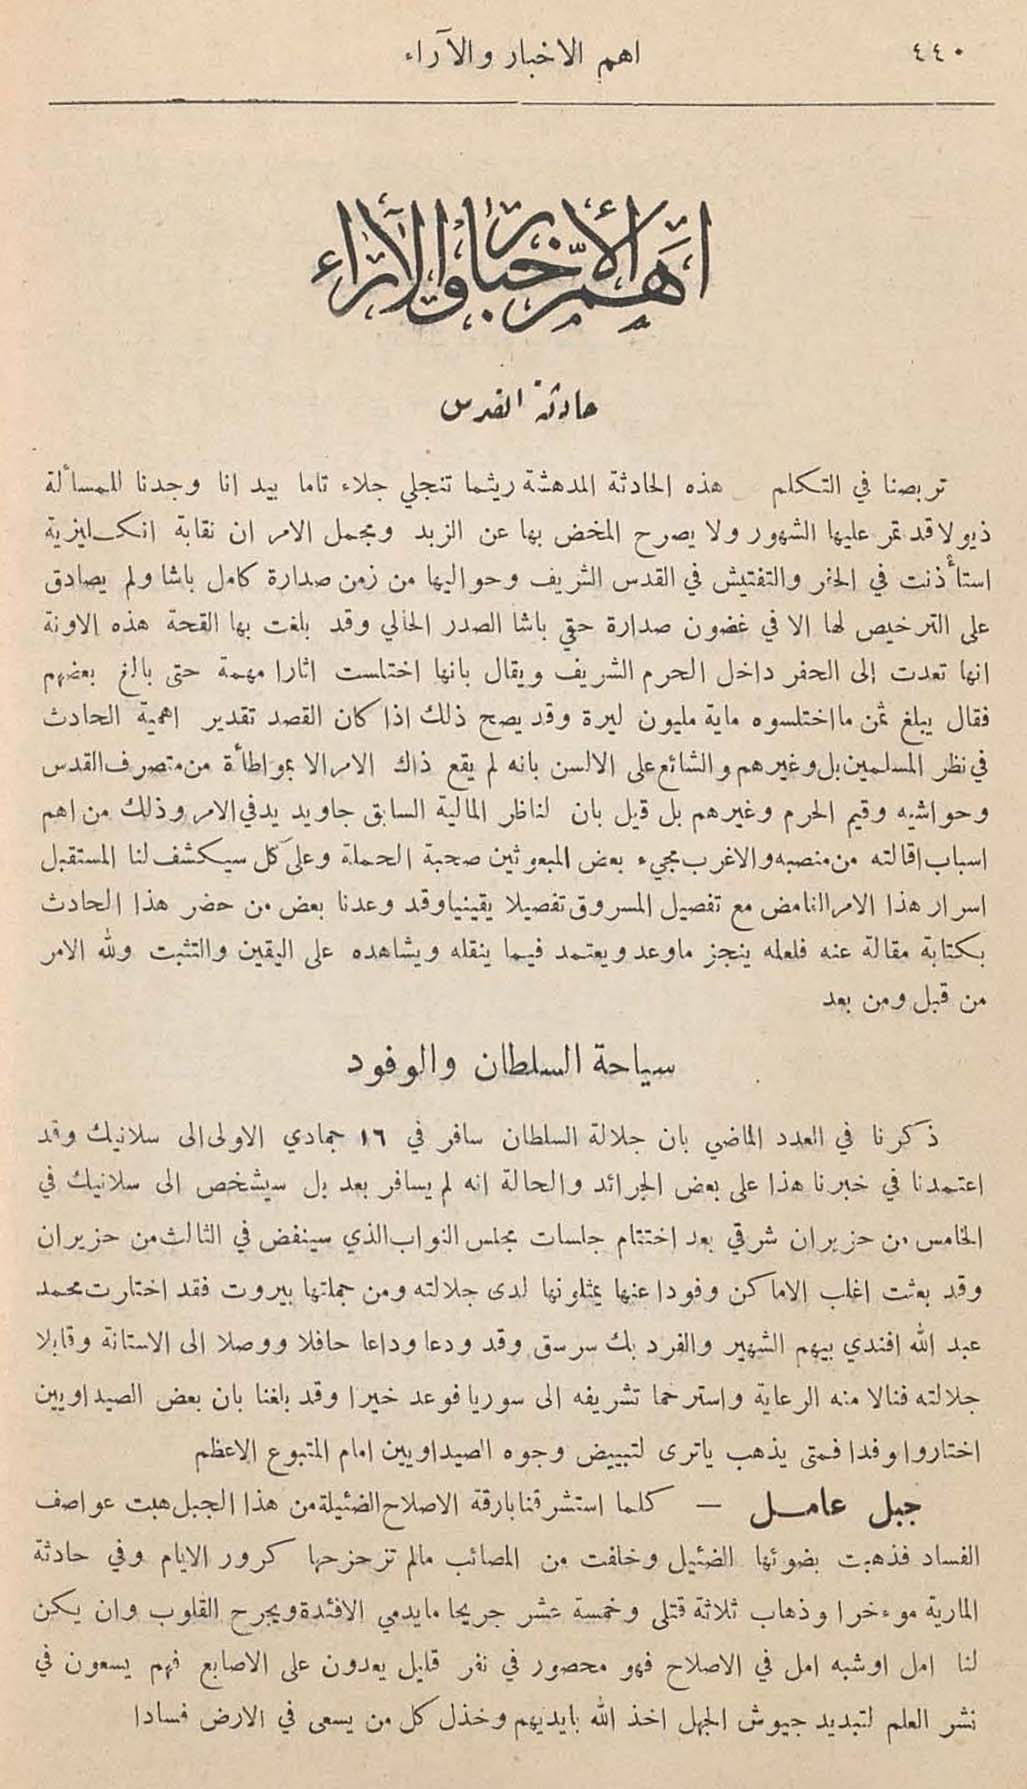 ٤٤٠
اهم الاخبار والآراء
اهم الأخبار والآراء
حادثة القدس
تربصنا في التكلم هذه الحادثة المدهشة ريثما تنجلي جلاء تاما بيد انا وجدنا للمسألة
ذيولا قد تمر عليها الشهور ولا يصرح المخض بها عن الزبد ومجمل الامر ان نقابة انكليزية
استأذنت في الحفر والتفتيش في القدس الشريف وحواليها من زمن صدارة كامل باشا ولم يصادق
على الترخيص لها الا في غضون صدارة حقي باشا الصدر الحالي وقد بلغت بها القحة هذه الاونة
انها تعدت الى الحفر داخل الحرم الشريف ويقال بانها اختلست اثارا مهمة حتى بالغ بعضهم
فقال يبلغ ثمن ما اختلسوه ماية مليون ليرة وقد يصح ذلك اذا كان القصد تقدير اهمية الحادث
في نظر المسلمين بل وغيرهم والشائع على الالسن بانه لم يقع ذاك الامر الا بمواطأة من متصرف القدس
وحواشيه وقيم الحرم وغيرهم بل قيل بان لناظر المالية السابق جاويد يد في الامر وذلك من اهم
اسباب اقالته من منصبه والاغرب مجيء بعض المبعوثين صحبة الحملة وعلى كل سيكشف لنا المستقبل
اسرار هذا الامر الغامض مع تفصيل المسروق تفصيلا يقينيا وقد وعدنا بعض من حضر هذا الحادث
بكتابة مقالة عنه فلعله ينجز ما وعد ويعتمد فيما ينقله ويشاهده على اليقين والتثبت ولله الامر
من قبل ومن بعد
سياحة السلطان والوفود
ذكرنا في العدد الماضي بان جلالة السلطان سافر في ١٦ جمادي الاولى الى سلانيك وقد
اعتمدنا في خبرنا هذا على بعض الجرائد والحالة انه لم يسافر بعد بل سيشخص الى سلانيك في
الخامس من حزيران شرقي بعد اختتام جلسات مجلس النواب الذي سينفض في الثالث من حزيران
وقد بعثت اغلب الاماكن وفودا عنها يمثلونها لدى جلالته ومن جملتها بيروت فقد اختارت محمد
عبد الله افندي بيهم الشهير والفرد بك سرسق وقد ودعا وداعا حافلا ووصلا الى الاستانة وقابلا
جلالته فنالا منه الرعاية واسترحما تشريفه الى سوريا فوعد خيرا وقد بلغنا بان بعض الصيداويين
اختاروا وفدا فمتى يذهب ياترى لتبييض وجوه الصيداويين امام المتبوع الاعظم
جبل عامل — كلما استشرقنا بارقة الاصلاح الضئيلة من هذا الجبل هبت عواصف
الفساد فذهبت بضوئها الضئيل وخلفت من المصائب مالم تزحزحها كرور الايام وفي حادثة
المارية موءخرا وذهاب ثلاثة قتلى وخمسة عشر جريحا ما يدمي الافئدة ويجرح القلوب وان يكن
لنا امل او شبه امل في الاصلاح فهو محصور في نفر قليل يعدون على الاصابع فهم يسعون في
نشر العلم لتبديد جيوش الجهل اخذ الله بايديهم وخذل كل من يسعى في الارض فسادا